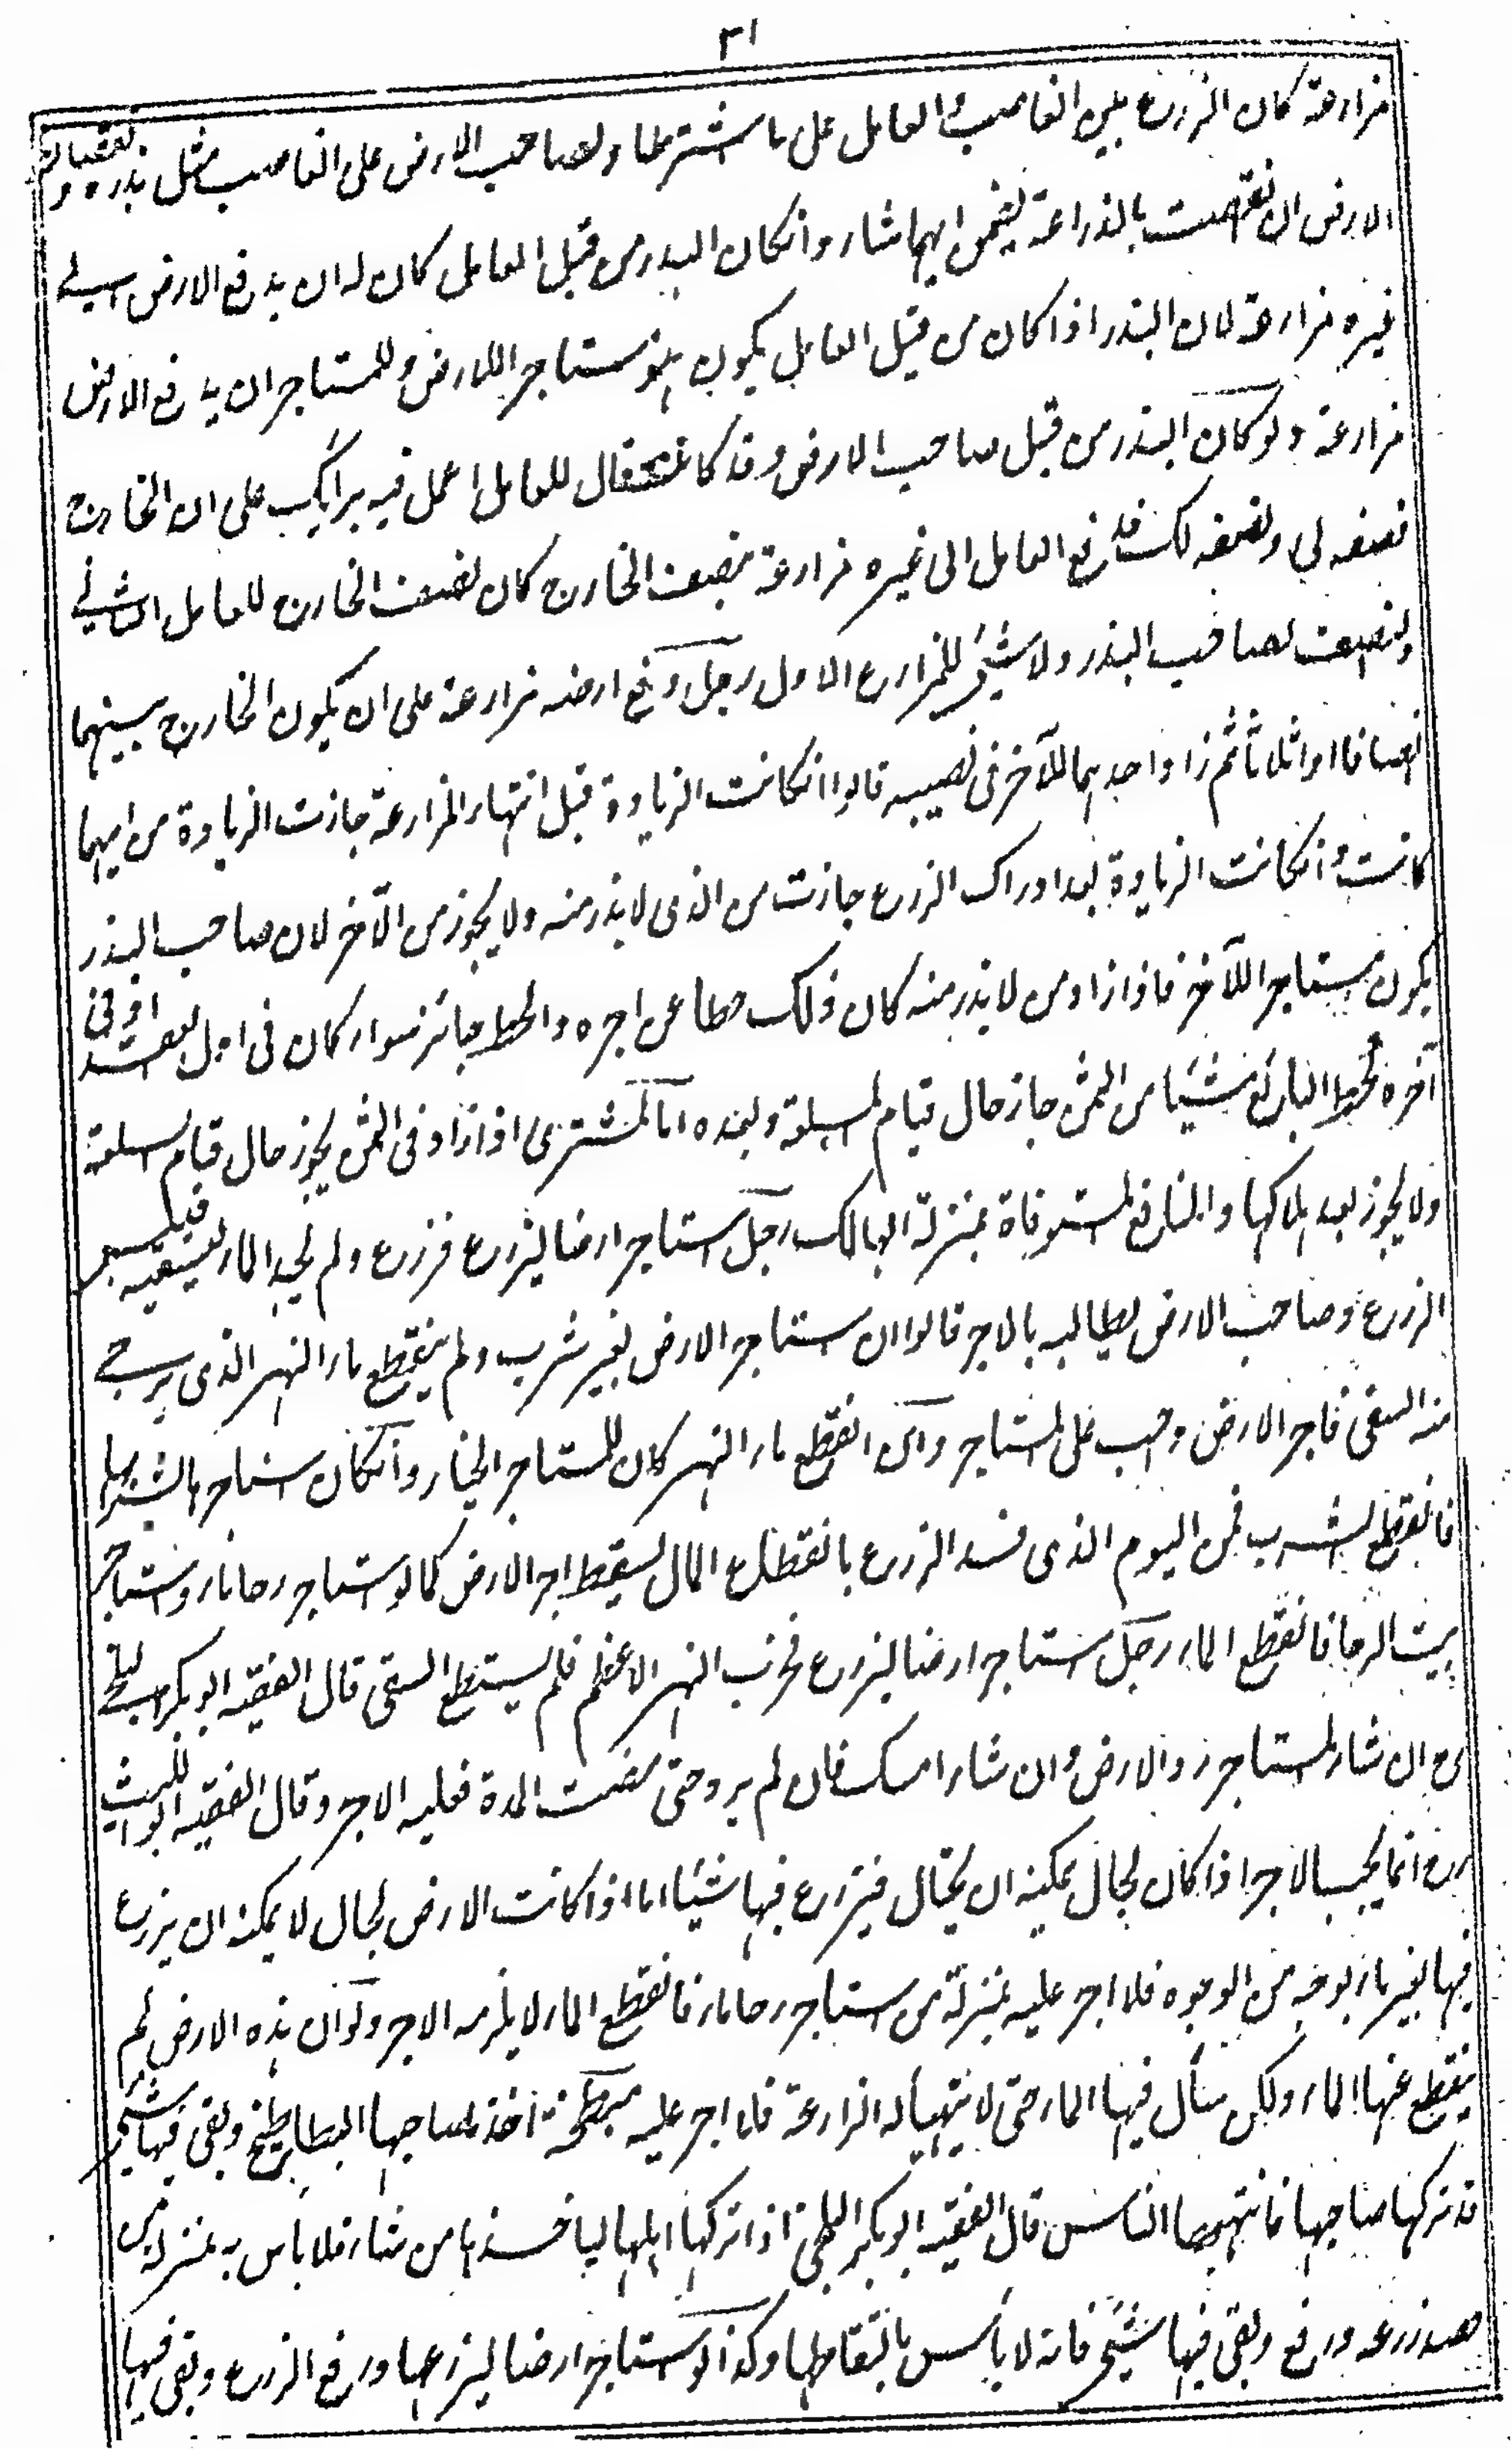 ٣١
مزارعة كان الزرع بين الغاصب والعامل على ما اشترطا ولصاحب الارض على الغاصب مثل بذره ونقصان
الارض ان نقصت بالزراعة يضمن ايهما شاء وانكان البذر من قبل العامل كان له ان يدفع الارض الى
غيره مزارعة لان البذر اذا كان من قبل العامل يكون هو مستاجرا للارض وللمستاجر ان يدفع الارض
مزارعة ولوكان البذر من قبل صاحب الارض وقد كان قال للعامل اعمل فيه برأيك على ان الخارج
نصفه لي ونصفه لك فدفع العامل الى غيره مزارعة بنصف الخارج كان نصف الخارج للعامل الثاني
ونصف لصاحب البذر ولا شئ للمزارع الاول رجل دفع ارضه مزارعة على ان يكون الخارج بينهما
انصافا او اثلاثا ثم زاد احدهما للآخر في نصيبه قالوا انكانت الزيادة قبل انتهاء المزارعة جازت الزيادة من ايهما
كانت وانكانت الزيادة بعد ادراك الزرع جازت من الذى لا بذر منه ولا يجوز من الآخر لان صاحب البذر
يكون مستاجرا للآخر فاذا زاد من لا بذر منه كان ذلك حطا عن اجره والحط جائز سواء كان فى اول العقد او فى
آخره كحط البائع شيئا من الثمن جاز حال قيام السلعة وبعده اما المشترى اذا زاد فى الثمن يجوز حال قيام السلعة
ولا يجوز بعد هلاكها والمنافع المستوفاة بمنزلة الهالك رجل استاجر ارضا ليزرع فزرع ولم يجد الماء ليسقيه فيبس
الزرع وصاحب الارض يطالبه بالاجر قالوا ان استاجر الارض بغير شرب ولم ينقطع ماء النهر الذى يرجى
منه السقى فاجر الارض وجب على المستاجر وان انقطع ماء النهر كان للمستاجر الخيار وانكان استاجرها بشربها
فانقطع الشرب فمن اليوم الذى فسد الزرع بانقطاع الماء يسقط اجر الارض كما لو استاجر رحا ماء واستاجر
بيت الرحا فانقطع الماء رجل استاجر ارضا ليزرع فخرب النهر الاعظم فلم يستطع السقى قال الفقيه ابو بكر البلخى
رح ان شاء المستاجر رد الارض وان شاء امسك فان لم يرد حتى مضت المدة فعليه الاجر وقال الفقيه ابو الليث
رح انما يجب الاجر اذا كان بحال يمكنه ان يحتال فيزرع فيها شيئا اما اذا كانت الارض بحال لا يمكنه ان يزرع
فيها بغير ماء بوجه من الوجوه فلا اجر عليه بمنزلة من استاجر رحا ماء فانقطع الماء لا يلزمه الاجر ولو ان هذه الارض لم
ينقطع عنها الماء ولكن سال فيها الماء حتى لا يتهيأ له الزراعة فلا اجر عليه مبطخة اخذ صاحبها البطاطيخ وبقى فيها شئ
قد تركها صاحبها فانتهبها الناس قال الفقيه ابو بكر البلخى اذا تركها اهلها لياخذها من شاء فلا باس به بمنزلة من
حصد زرعه ورفع وبقى فيها شئ فانه لا باس بالتقاطها وكذا لو استاجر ارضا ليزرعها ورفع الزرع وبقى فيها